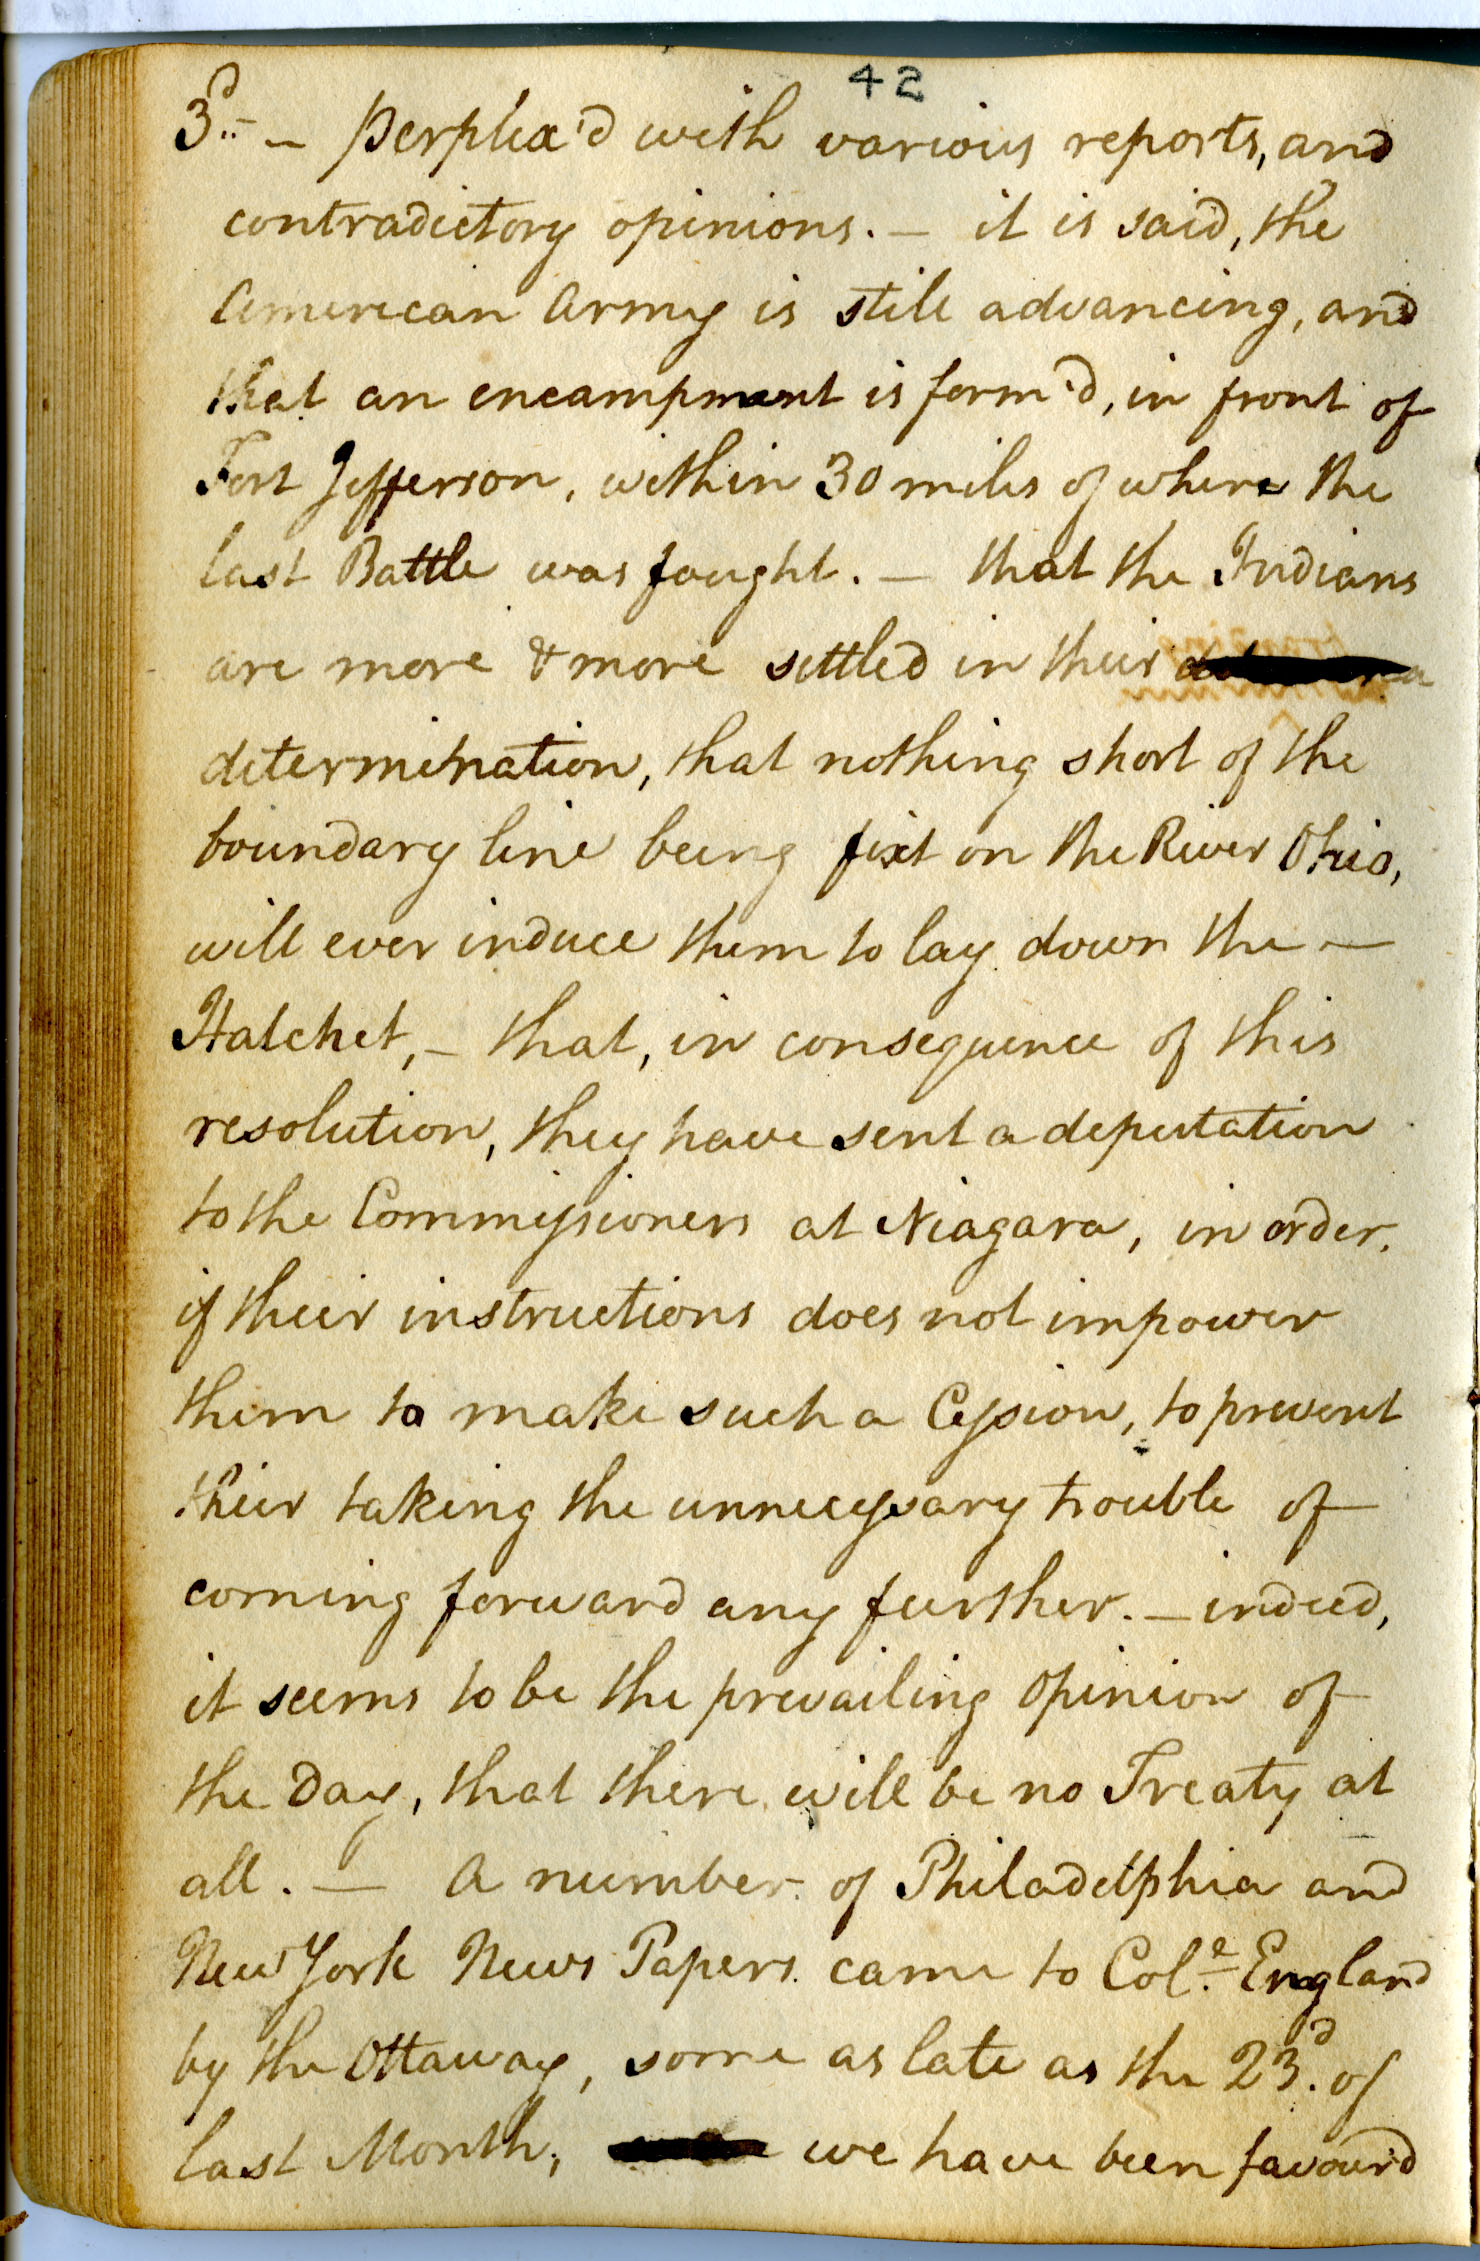 42
3d — Perplex'd with various reports, and
contradictory opinions. — it is said, the
American Army is still advancing, and
that an encampment is form'd, in front of
Fort Jefferson, within 30 miles of where the
last Battle was fought. — that the Indians
are more & more settled in their
determination, that nothing short of the
boundary line being fixt on the River Ohio,
will ever induce them to lay down the —
Hatchet, — that, in consequence of this
resolution, they have sent a deputation
to the Commissioners at Niagara, in order,
if their instructions does not impower
them to make such a Cession, to prevent
their taking the unnecessary trouble of
coming forward any further. — indeed,
it seems to be the prevailing opinion of
the Day, that there will be no Treaty at
all. — A number of Philadelphia and
New York News Papers came to Col.e England
by the Ottaway, some as late as the 23.d of
last Month, we have been favour'd